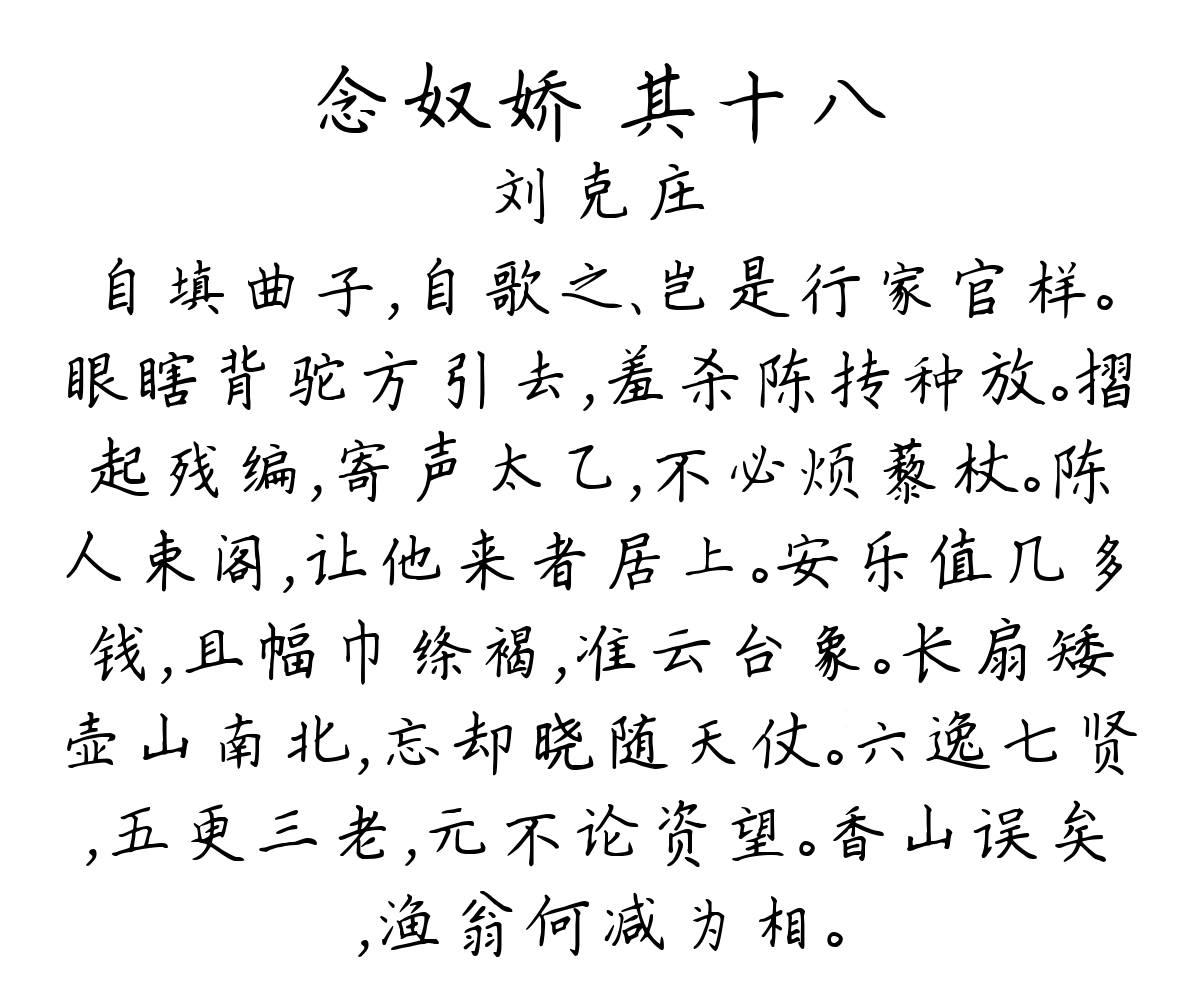 念奴娇 其十八
刘克庄
自填曲子,自歌之、岂是行家官样。
眼瞎背驼方引去,羞杀陈抟种放。摺
起残编,寄声太乙,不必烦藜杖。陈
人束阁,让他来者居上。安乐值几多
钱,且幅巾绦褐,准云台象。长扇矮
壶山南北,忘却晓随天仗。六逸七贤
,五更三老,元不论资望。香山误矣
,渔翁何减为相。